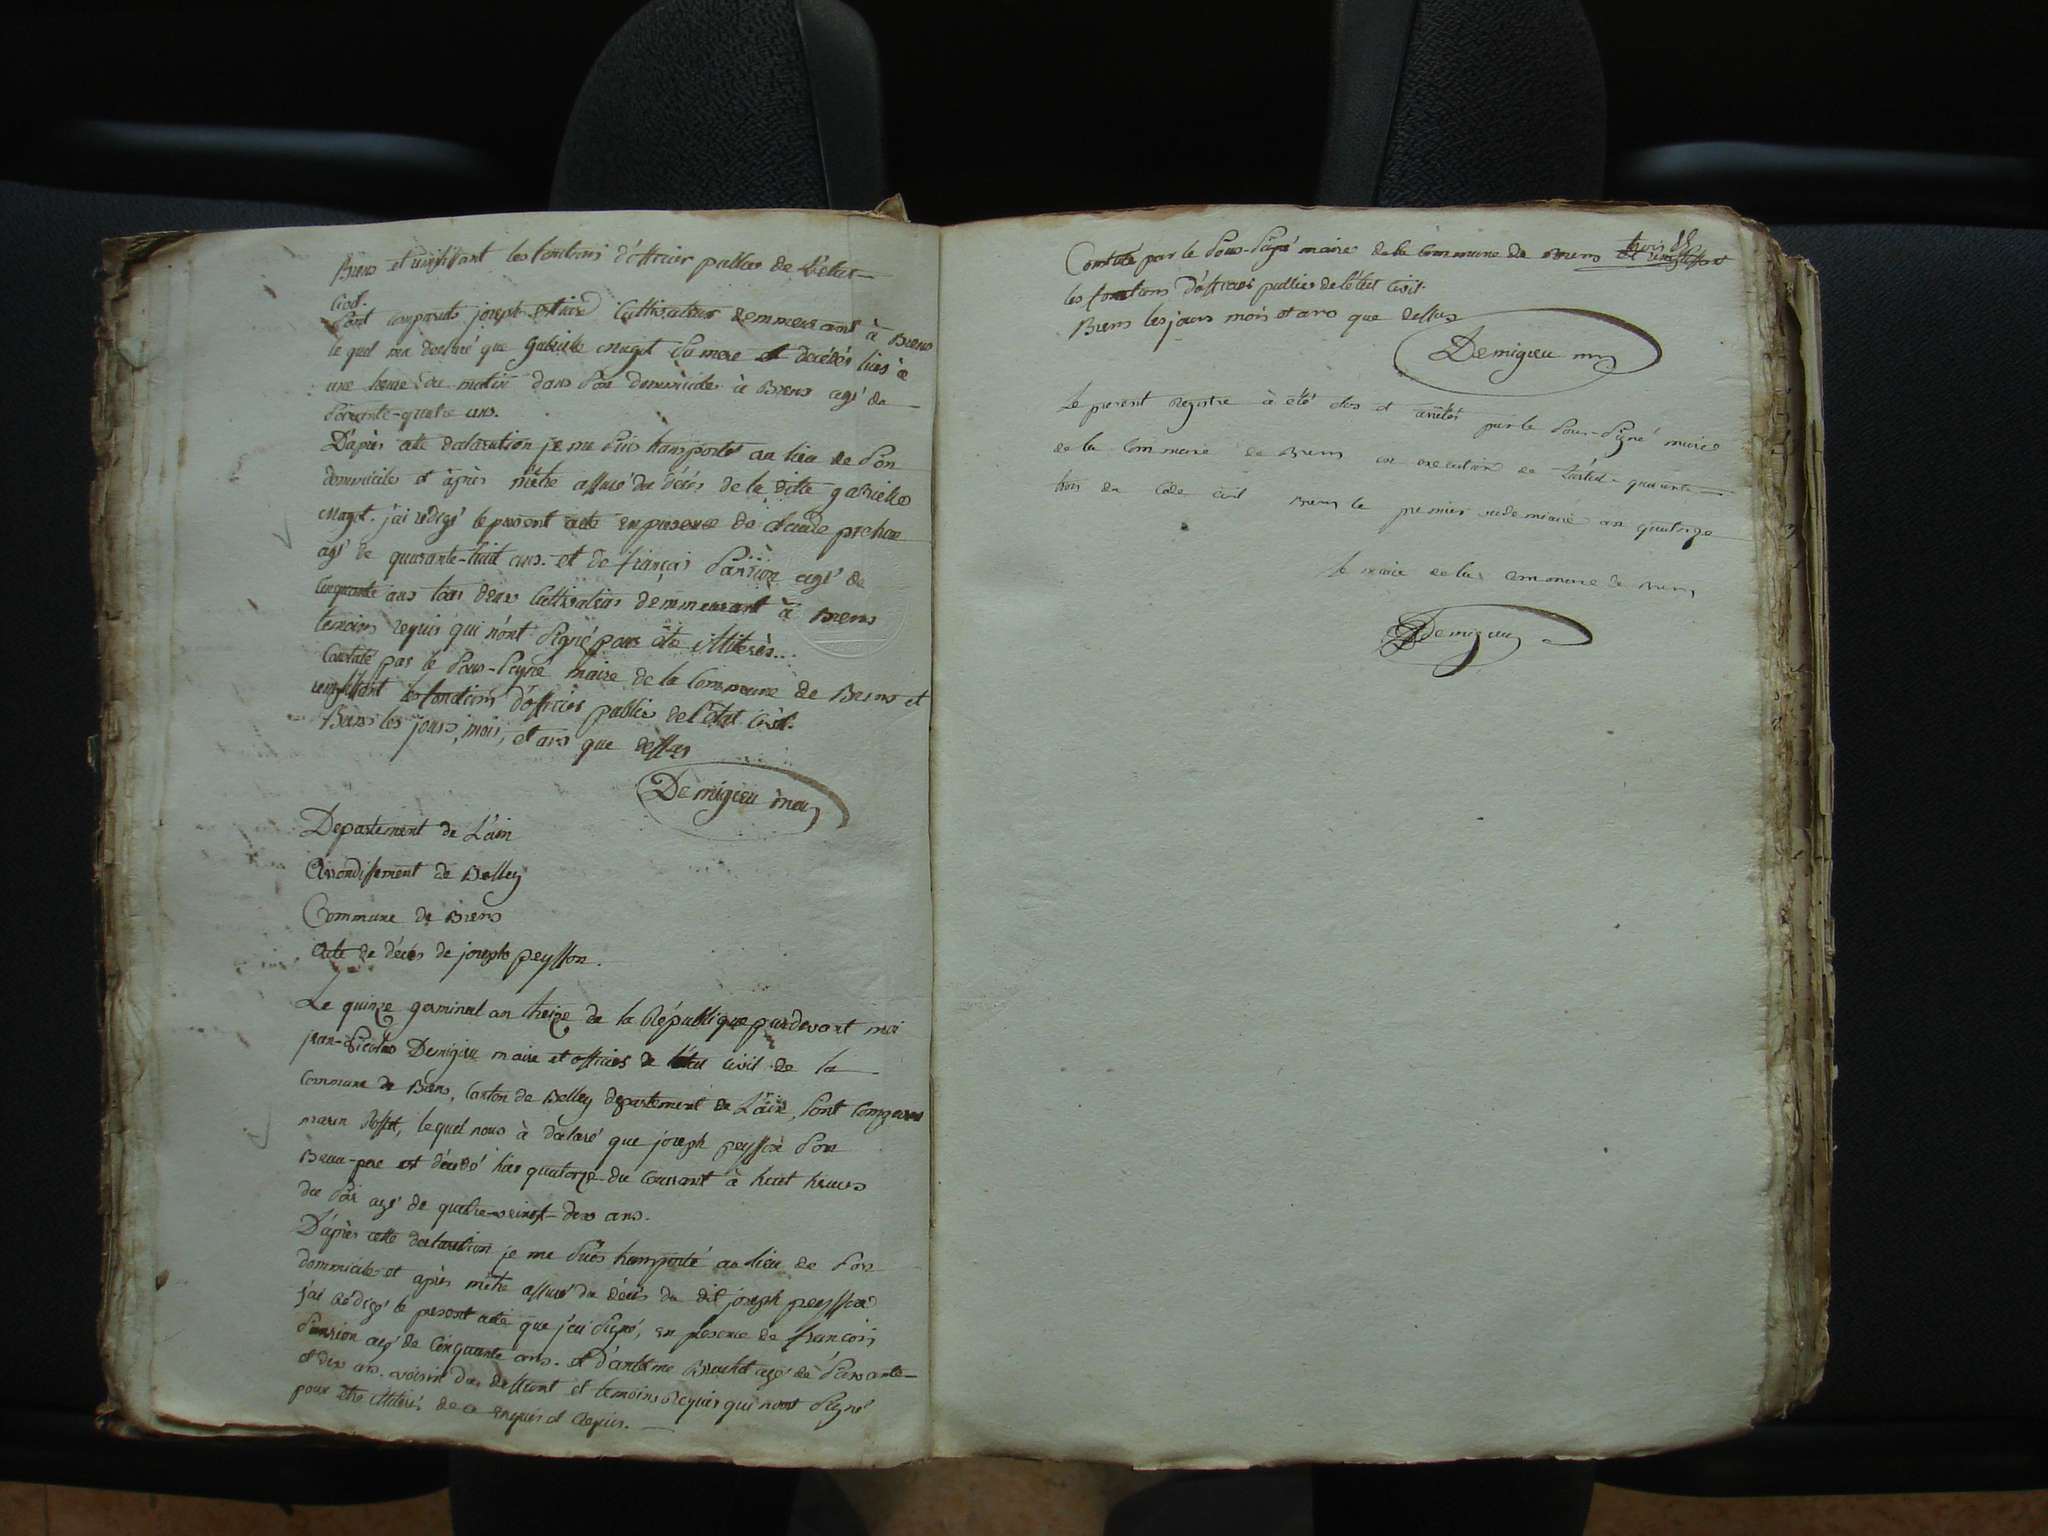 Brens et remplissant les fonctions d'officier public de l'état
civil.
Sont comparuts joseph cultivateur demmeurant à Brens
le quel m'a declaré que gabrielle Magit sa mere est decédés hiers à
une heure du matin dans son dommicile à Brens agé de
soixante-quatre ans.
D'après cette declaration je me suis transporté au lieu de son
dommicile et àprès mêtre assuré du décés de la ditte gabrielle
Magit. j'ai rédigé le present acte en presence de claude
agé de quarante-huit ans. et de françois Pansion agé de
cinquante ans tous deux cultivateurs demmeurant à Brens
temoins requis qui n'ont signé pour etre illiterés...
Constaté par le sous-signé maire de la commune de Brens et
remplissant les fonctions d'officier public de l'état civil.
Brens les jours, mois, et ans que dessus
Demigieu
Departement de L'ain
Arrondissement de Belley
Commune de Brens
Acte de décés de joseph peysson.
Le quinze germinal an treize de la République pardevant moi
jean-Nicolas Demigieu maire et officier de l'état civil de la
commune de Brens, Canton de Belley departement de L'ain, sont comparus
marin Rosset, lequel nous à declaré que joseph peysson son
Beau-pere est décédé hier quatorze du courant à huit heures
du soir agé de quatre-veingt-deux ans.
D'après cette declaration je me suis transporté au lieu de son
dommicile et après mêtre assuré du décés du dit joseph peysson
j'ai rédigé le present acte que j'ai signé, en presence de françois
Pansion agé de cinquante ans. et d'antelme Brachet agé de soixante-
et dix ans. voisin du deffunt et temoins requis qui n'ont signé
pour etre illiterés de ce enquis et requis.
Constaté par le sous-signé maire de la commune de Brens
les fonctions d'officier public de l'état civil.
Brens les jours mois et ans que dessus
Demigieu
Le present registre à été clos et arrêtés par le sous-signé maire
de la commune de Brens en execution de l'article quarante
trois du Code civil Brens le premier vendemiaire an quatorze
le maire de la commune de Brens
Demigieu